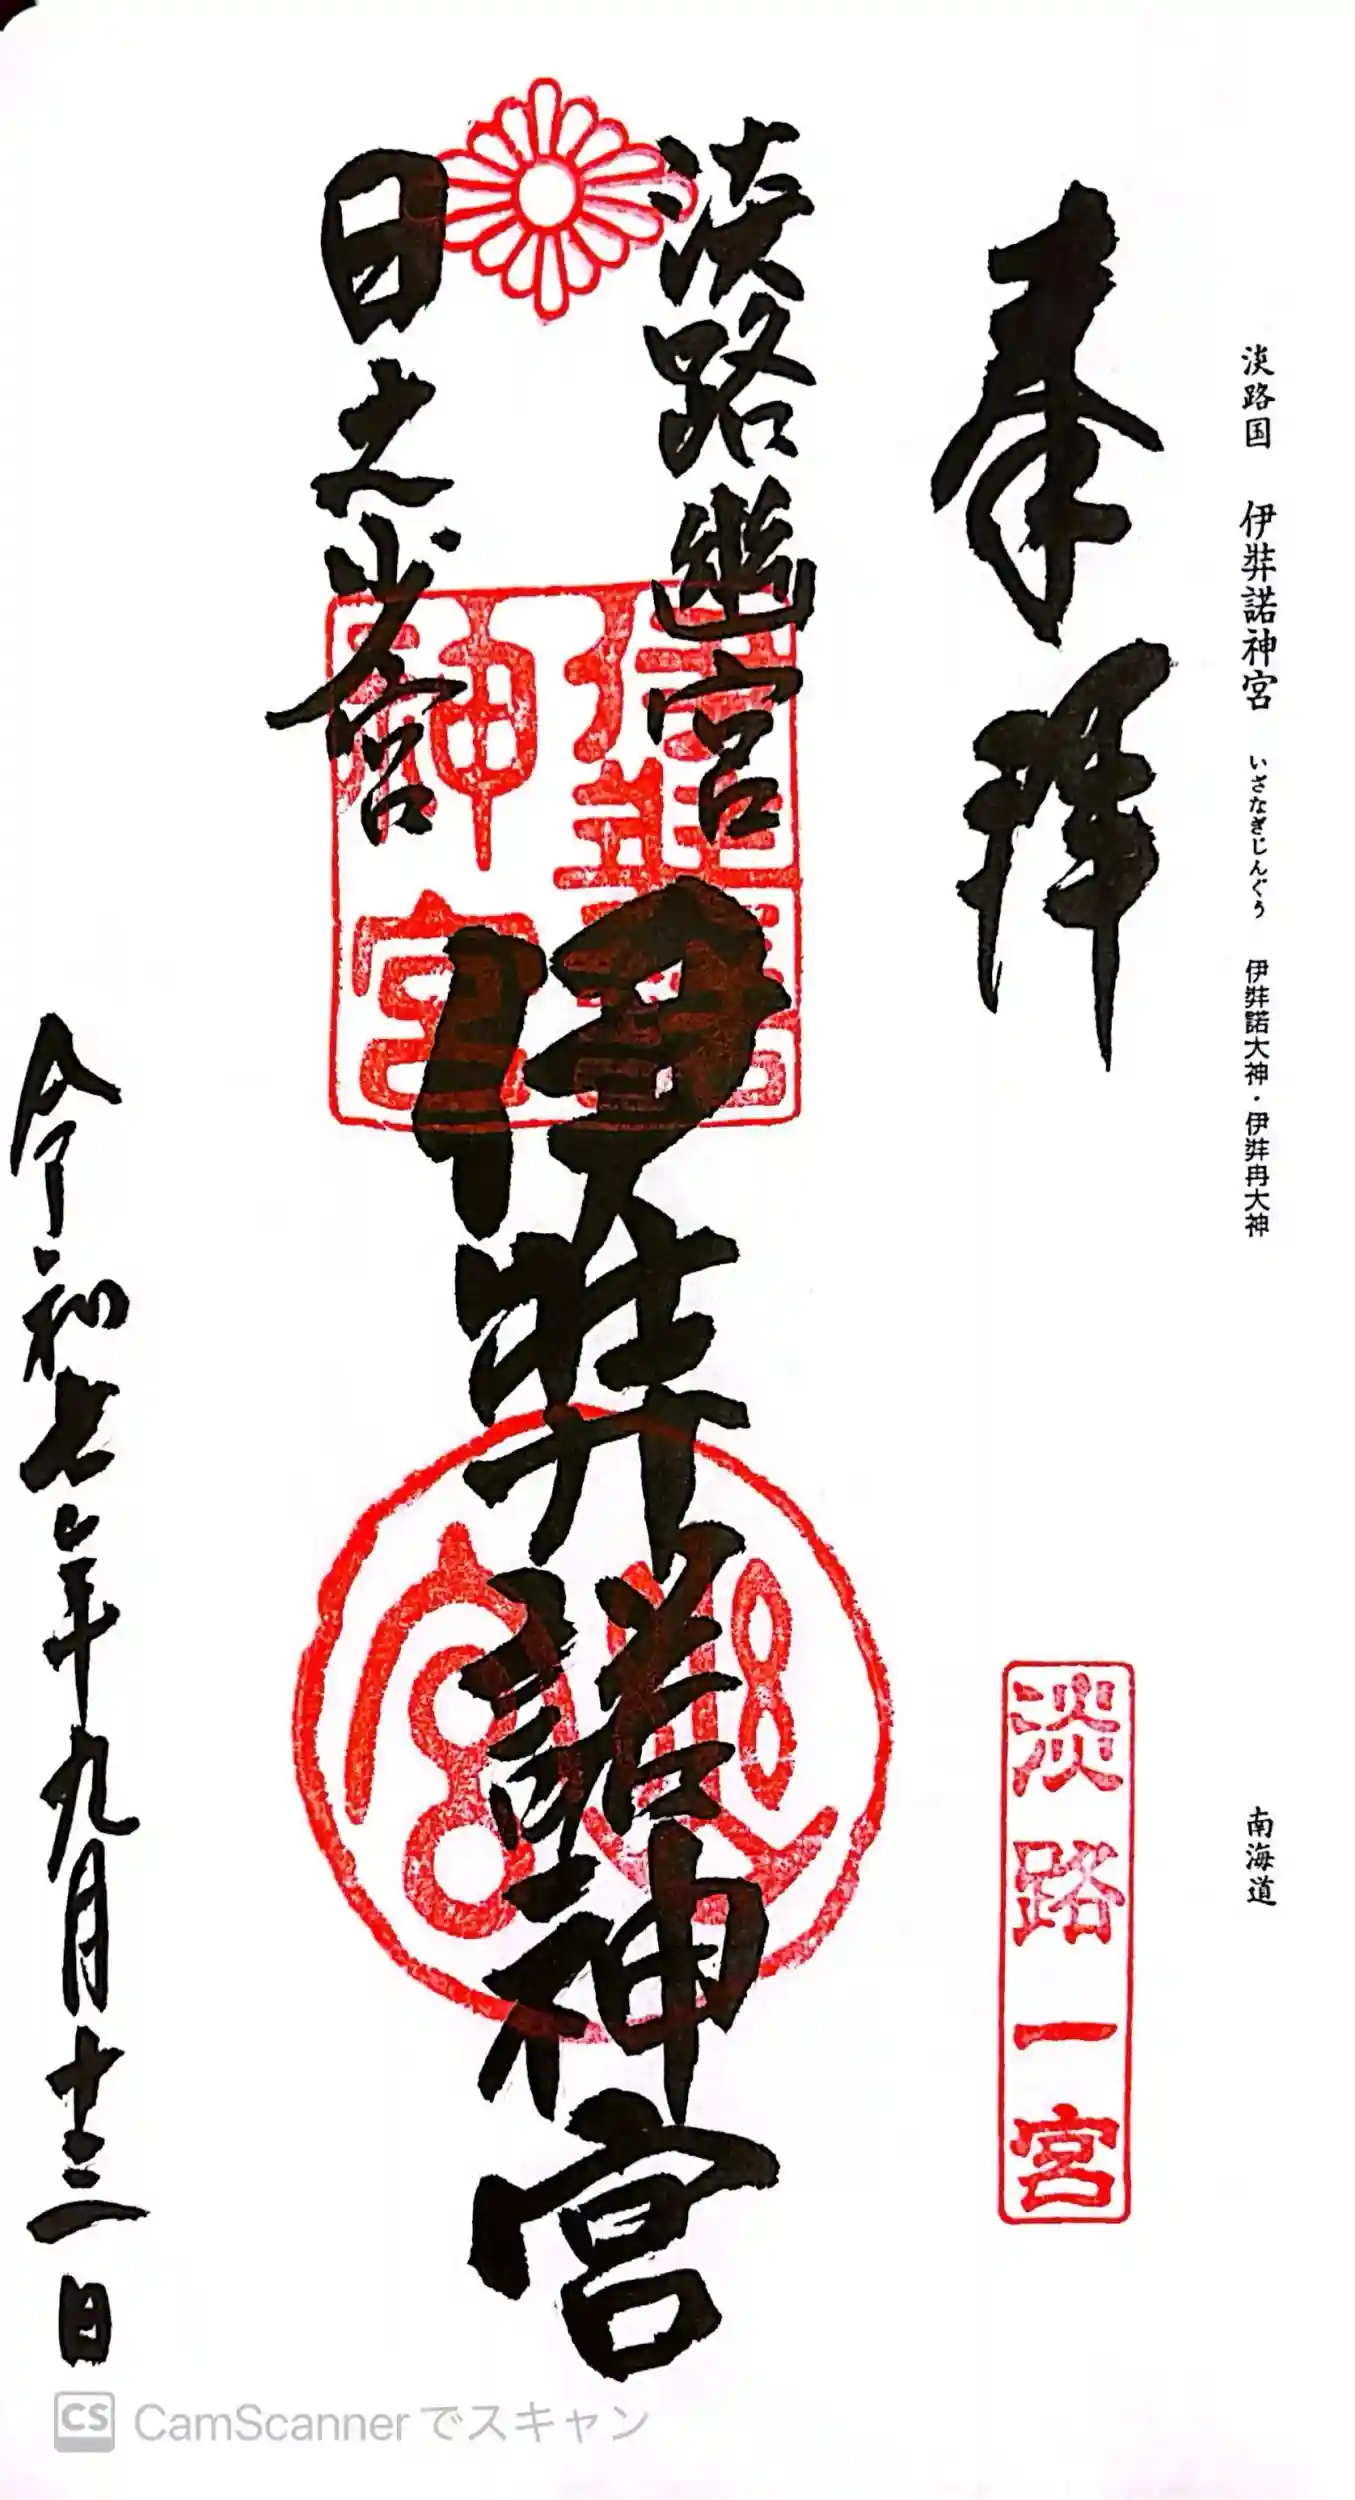 淡路国 伊弉諾神宮 いざなぎじんぐう 伊弉諾大神・伊弉冉大神
南海道
奉拝
淡路一宮
淡路幽宮
日之少宮
伊弉諾神宮
伊弉諾神宮
幽宮
令和七年九月十三日
CS CamScannerでスキャン